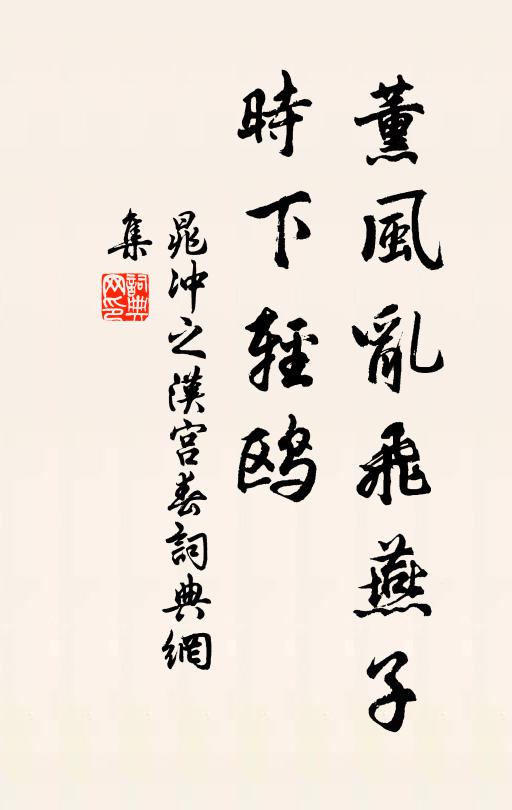 薰風亂飛燕子
時下輕鸥
晁冲之漢宮春詞典網
集
詞典
网印